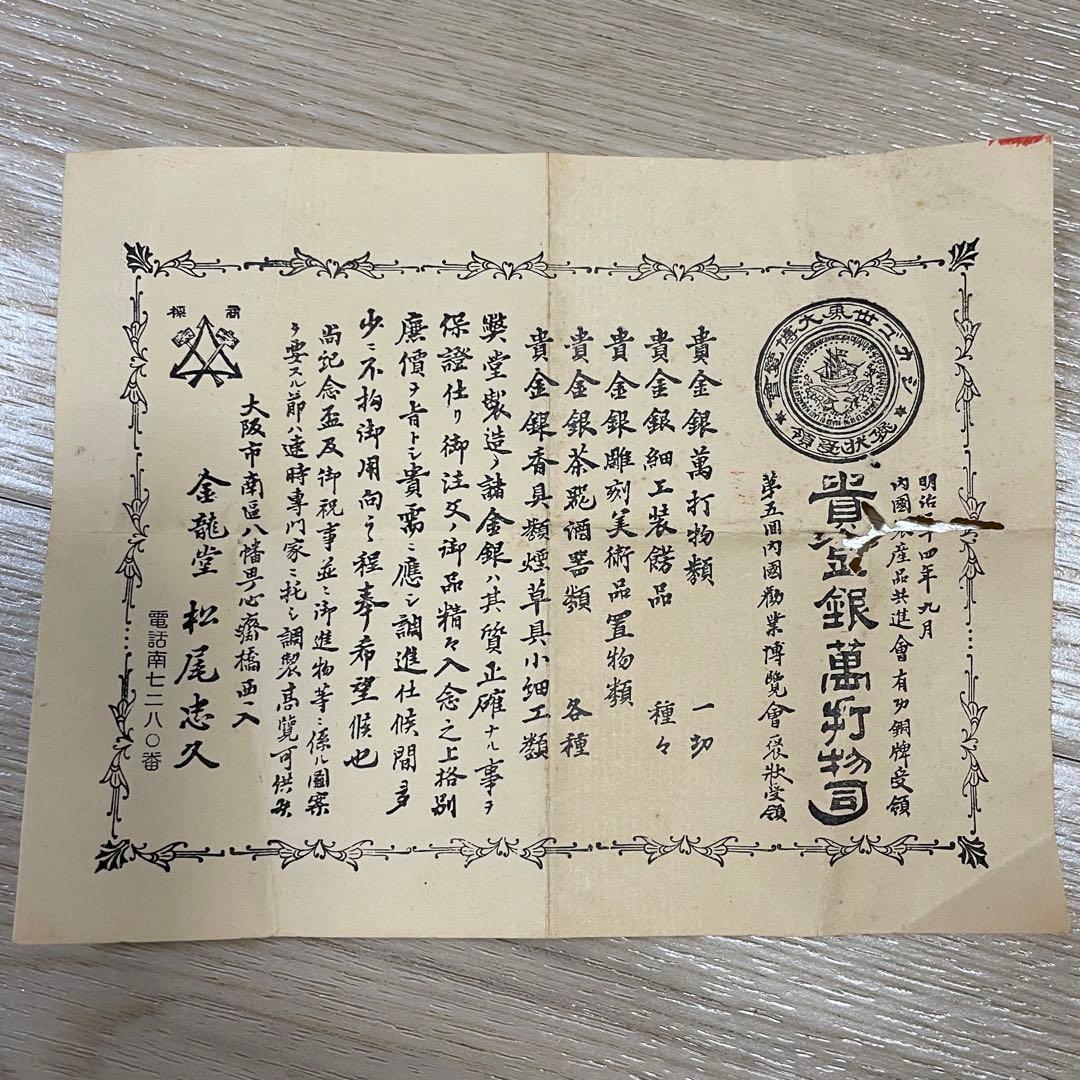 シカゴ世界大博覧會
褒状受領
明治 十四年九月
内國 産産品共進會有功銅牌受領
貴金銀萬打物司
第五回内國勸業博覽會褒狀受領
貴金銀萬打物類 一切
貴金銀細工装餝品 種々
貴金銀雕刻美術品置物類
貴金銀茶瓶酒器類 各種
貴金銀香具類煙草具小細工類
弊堂製造ノ諸金銀ハ其質正確ナル事ヲ
保證仕リ御注文ノ御品精々入念之上格別
廉價ヲ旨トシ貴需ニ應シ調進仕候間多
少ニ不拘御用向之程奉希望候也
尚記念盃及御祝事並ニ御進物等ニ係ル圖案
ヲ要スル節ハ速時專門家ニ托シ調製高覽可供候
大阪市南區八幡晋心齋橋西入
金龍堂 松尾忠久
電話南七二八〇番
商標